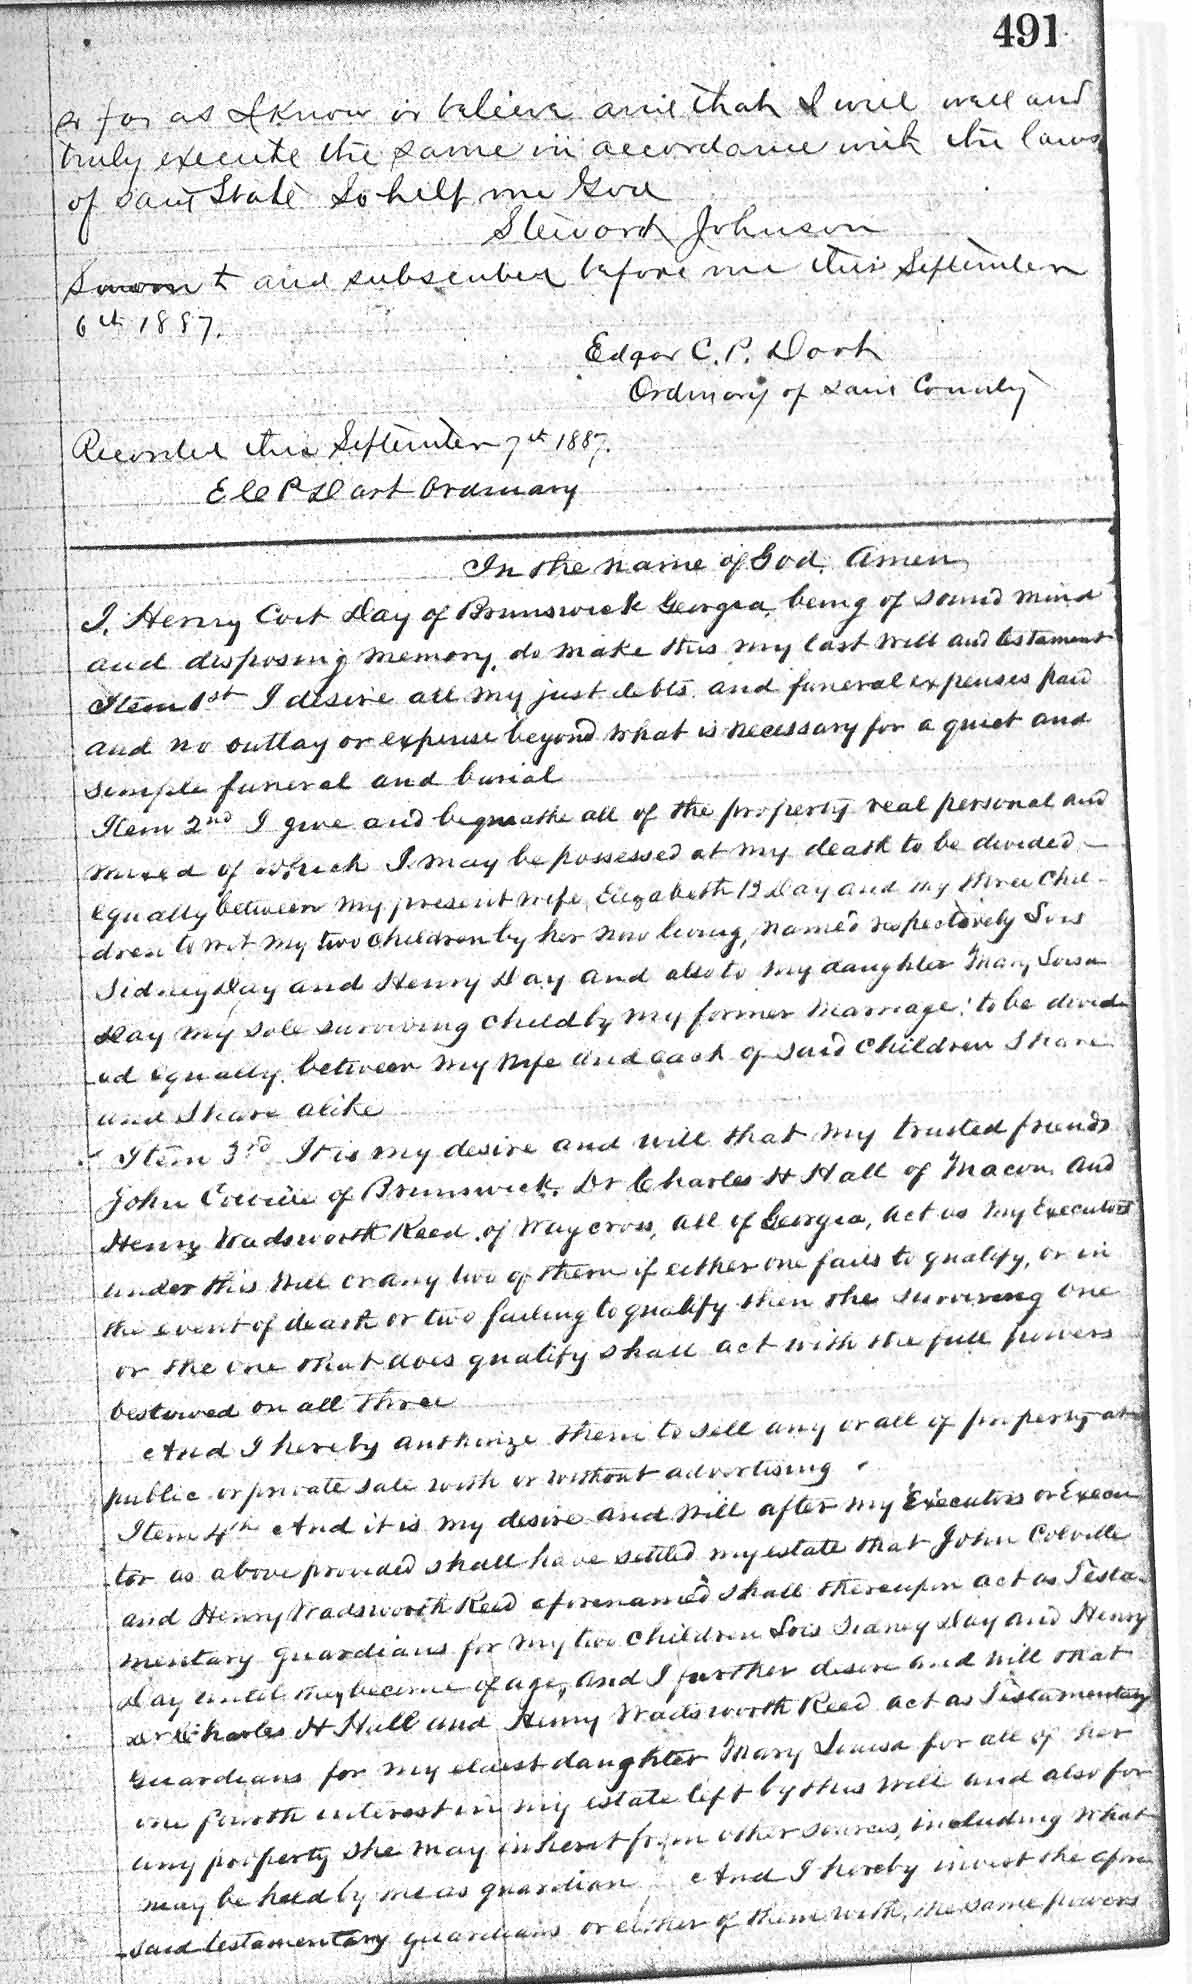 491
so far as I know or believe and that I will well and
truly execute the same in accordance with the laws
of said State So help me God
Steward Johnson
Sworn to and subscribed before me this September
6th 1887.
Edgar C. P. Dart
Ordinary of said County
Recorded this September 7th 1887.
E C P Dart Ordinary
In the name of God, Amen,
I, Henry Coit Day of Brunswick Georgia, being of sound mind
and disposing memory, do make this my last will and testament
Item 1st I desire all my just debts and funeral expenses paid
and no outlay or expense beyond what is necessary for a quiet and
simple funeral and burial
Item 2nd I give and bequeathe all of the property real personal and
mixed of which I may be possessed at my death to be divided
equally between my present wife, Elizabeth B Day and my three Chil-
dren to wit my two children by her now living, named respectively Lois
Sidney Day and Henry Day and also to my daughter Mary Louisa
Day my sole surviving child by my former marriage: to be divid
ed equally between my wife and each of said children Share
and Share alike
Item 3rd It is my desire and will that my trusted friends
John Colville of Brunswick, Dr Charles H Hall of Macon and
Henry Wadsworth Reed of Waycross, all of Georgia, act as my Executors
under this Will or any two of them if either one fails to qualify, or in
the event of death or two failing to qualify then the surviving one
or the one that does qualify shall act with the full powers
bestowed on all three
And I hereby authorize them to sell any or all of property at
public or private sale with or without advertising.
Item 4th And it is my desire and will after my Executors or Execu
tor as above provided shall have settled my estate that John Colville
and Henry Wadsworth Reed aforenamed shall thereupon act as Testa-
mentary guardians for my two children Lois Sidney Day and Henry
Day until they become of age, and I further desire and will that
Dr Charles H Hall and Henry Wadsworth Reed act as Testamentary
Guardians for my eldest daughter Mary Louisa for all of her
one fourth interest in my estate left by this will and also for
any property she may inherit from other sources, including what
may be held by me as guardian And I hereby invest the afore
said testamentary guardians or either of them with, the same powers